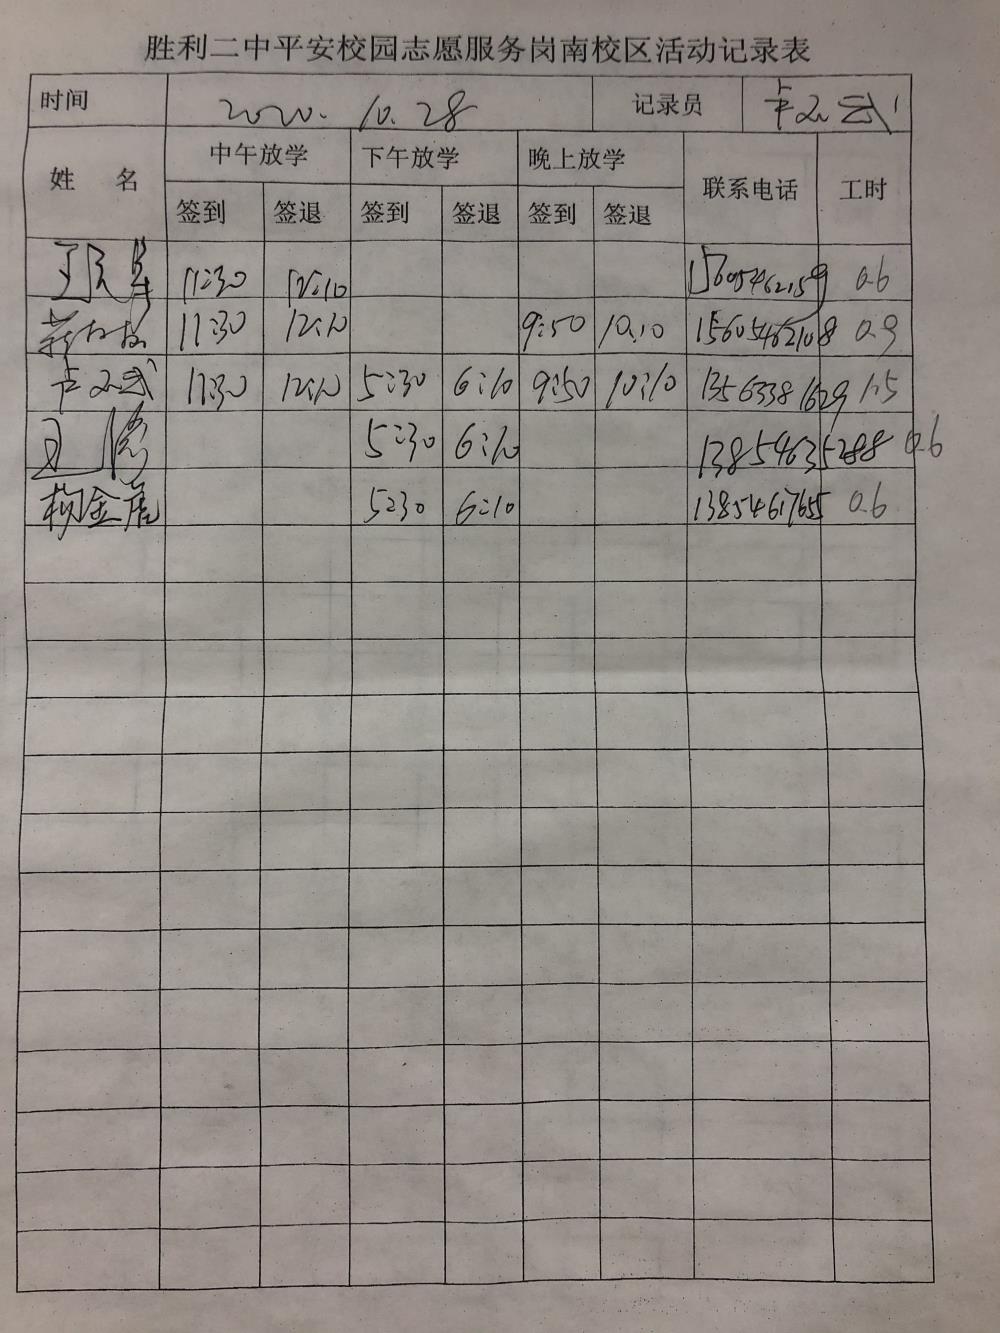 胜利二中平安校园志愿服务岗南校区活动记录表
时间 2020. 10. 28 记录员
姓 名 中午放学 下午放学 晚上放学 联系电话 工时
签到 签退 签到 签退 签到 签退
11:30 12:10 15605462159 0.6
11:30 12:10 9:50 10:10 15605462108 0.9
11:30 12:10 5:30 6:10 9:50 10:10 13563381629 1.5
王 5:30 6:10 13854635288 0.6
杨金虎 5:30 6:10 13854617655 0.6